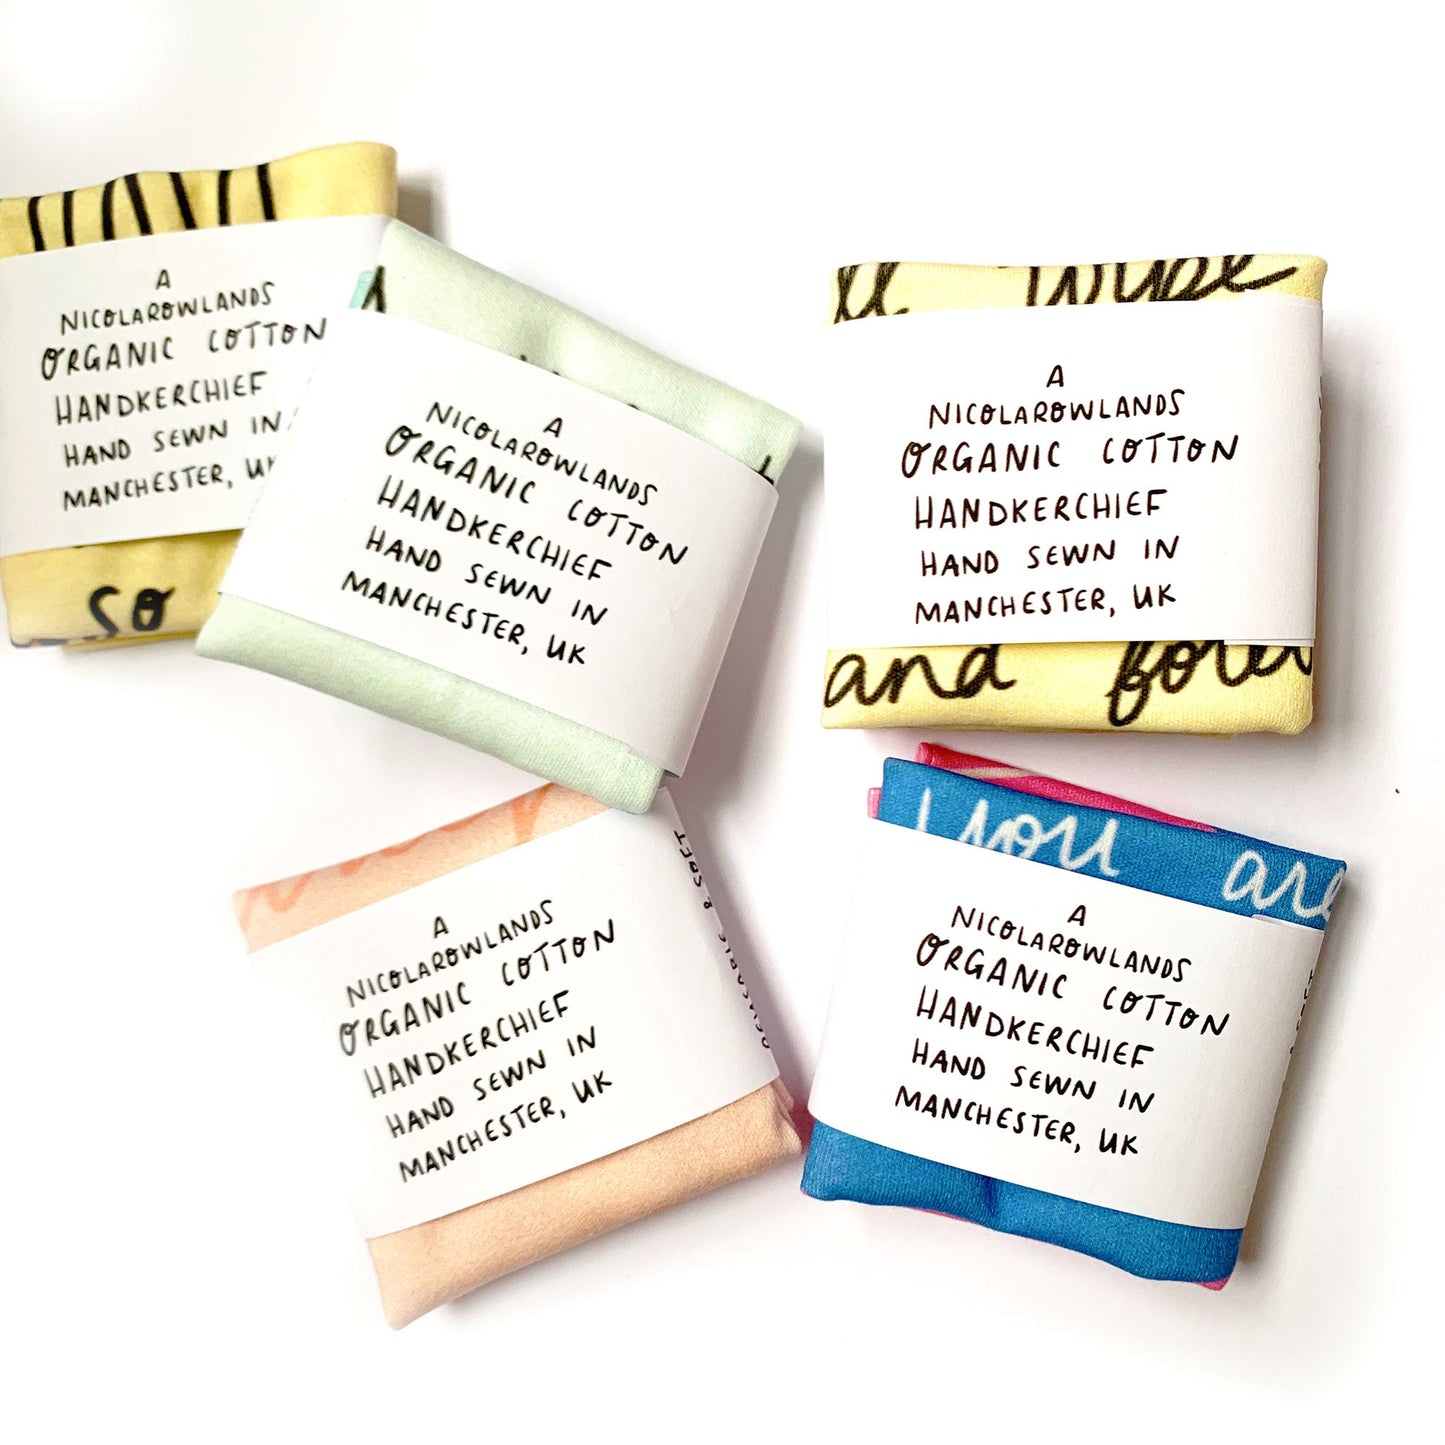 so
A
NICOLAROWLANDS
ORGANIC COTTON
HANDKERCHIEF
HAND SEWN IN
MANCHESTER, UK
A
NICOLAROWLANDS
ORGANIC COTTON
HANDKERCHIEF
HAND SEWN IN
MANCHESTER, UK
wipe
A
NICOLAROWLANDS
ORGANIC COTTON
HANDKERCHIEF
HAND SEWN IN
MANCHESTER, UK
and
A
NICOLAROWLANDS
ORGANIC COTTON
HANDKERCHIEF
HAND SEWN IN
MANCHESTER, UK
& SOFT
you are
A
NICOLAROWLANDS
ORGANIC COTTON
HANDKERCHIEF
HAND SEWN IN
MANCHESTER, UK